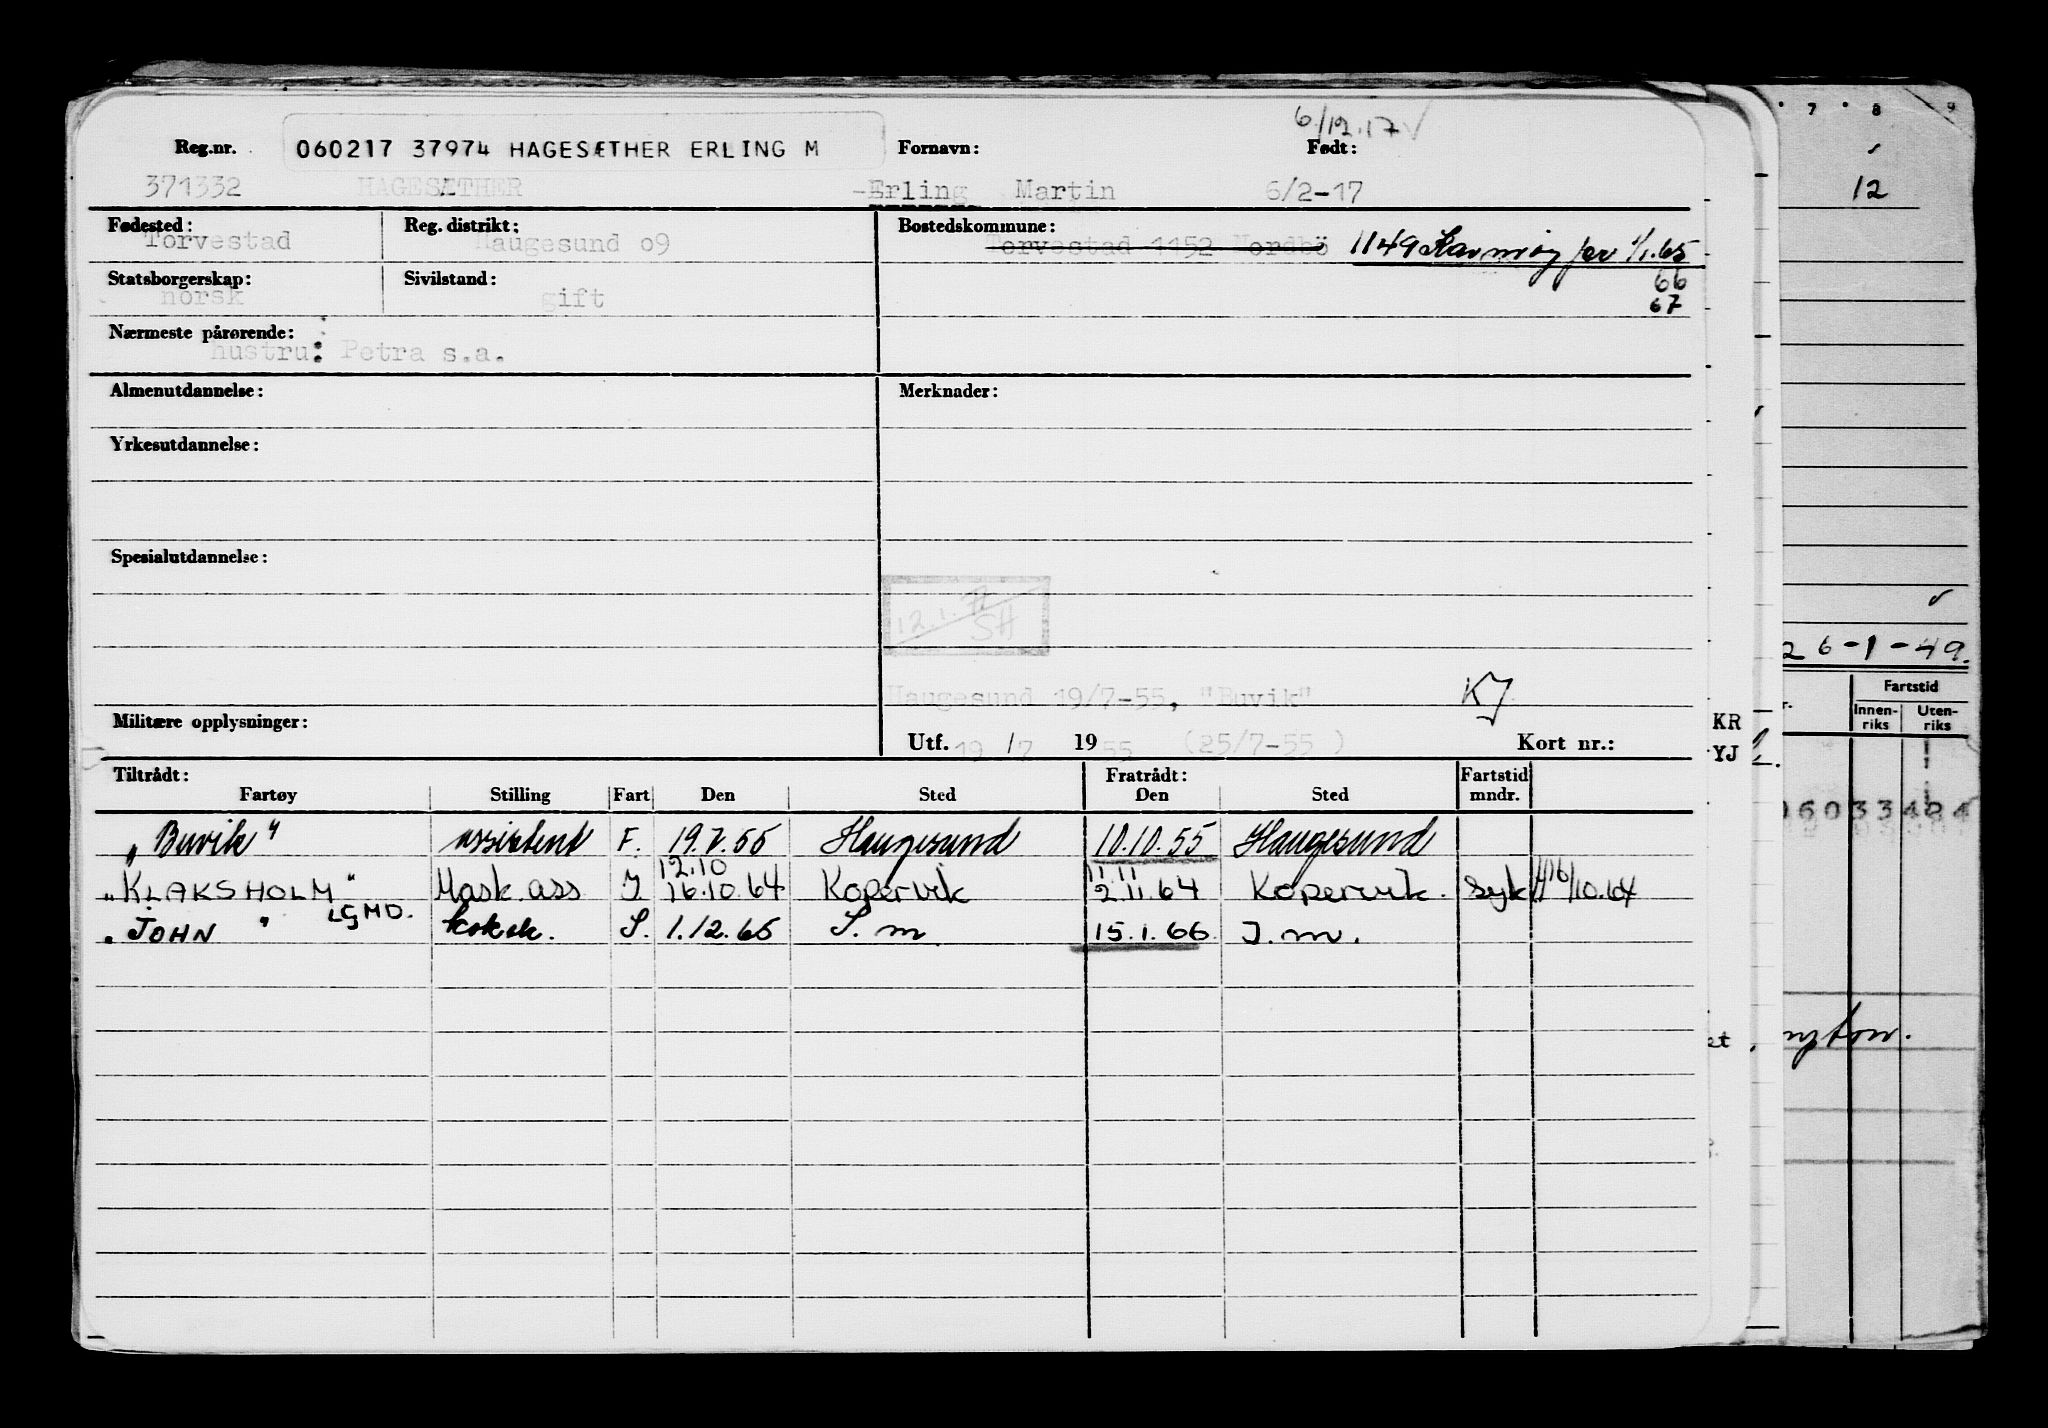 6/12.17 ✓
Reg.nr. 060217 37974 HAGESÆTHER ERLING M Fornavn: Født:
371332 HAGESÆTHER Erling Martin 6/2-17
Fødested: Reg. distrikt: Bostedskommune:
Torvestad Haugesund 09 Torvestad 1152 Nordbö 1149 Karmöy per 1/1.65
Statsborgerskap: Sivilstand: 66
norsk gift 67
Nærmeste pårørende:
hustru: Petra s.a.
Almenutdannelse: Merknader:
Yrkesutdannelse:
Spesialutdannelse:
12.1.
SH
Haugesund 19/7-55, "Buvik" KJ
Militære opplysninger:
Utf. 19/7 19 55 (25/7-55 ) Kort nr.:
Tiltrådt: Fratrådt: Fartstid
Fartøy Stilling Fart Den Sted Den Sted mndr.
"Buvik" assistent F. 19.7.55 Haugesund 10.10.55 Haugesund
12.10 11.11
"KLAKSHOLM" Mask.ass J. 16.10.64 Kopervik 2.11.64 Kopervik. Syk 16/10.64
"JOHN" LGMD. kokk. S. 1.12.65 S.m 15.1.66 J.m.
KR
YJ
7 8 9
12
26-1-49.
Fartstid
Innen-
riks
Uten-
riks
et
ngton.